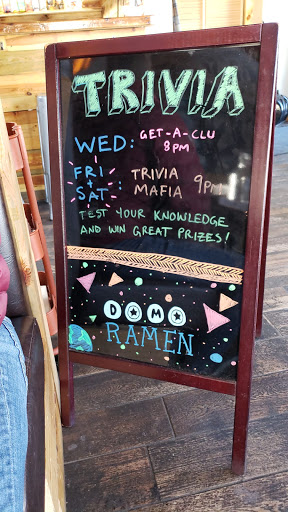 TRIVIA
WED: GET-A-CLU
8PM
FRI
+
SAT : TRIVIA
MAFIA 9PM
TEST YOUR KNOWLEDGE
AND WIN GREAT PRIZES!
DOMO
RAMEN